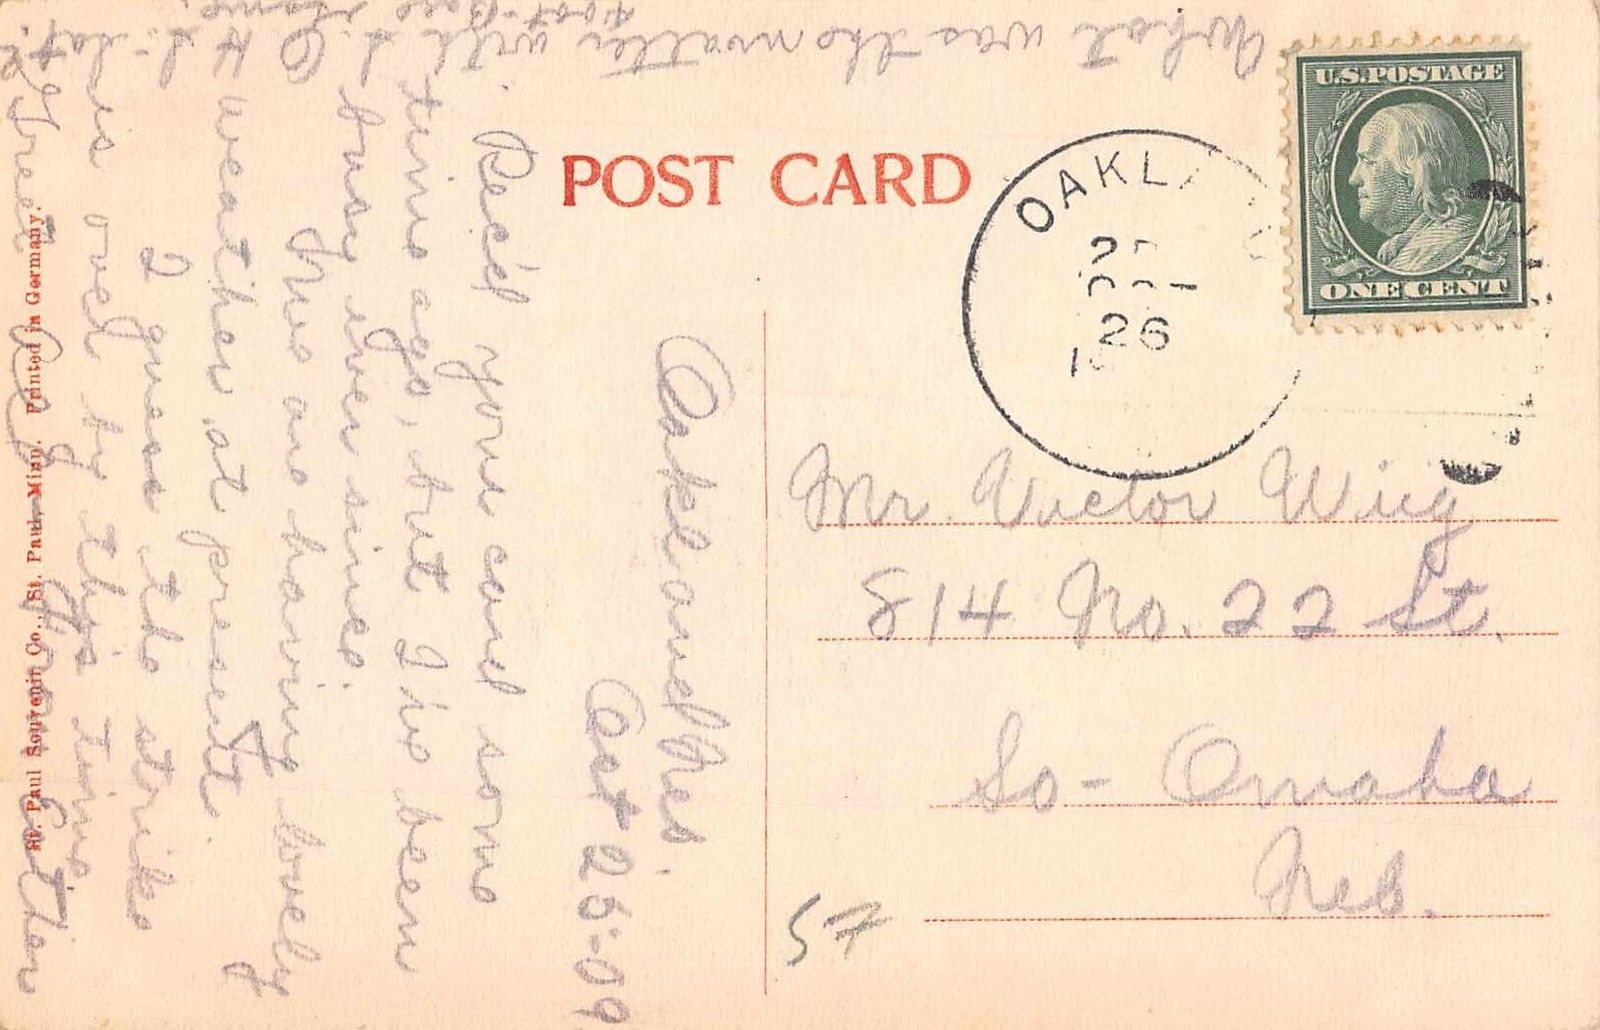 POST CARD
U.S. POSTAGE
ONE CENT
OAKL
26
Mr. Victor Wiig
814 No. 22 St.
So- Omaha
Neb.
57
Oakland Neb.
Oct 25-09
Rec'd your card some
time ago, but I've been
busy ever since.
We are having lovely
weather at present.
I guess the strike
is over by this time
Greet
from Esther
What was the matter with
St. Paul Souvenir Co., St. Paul, Minn. Printed in Germany.